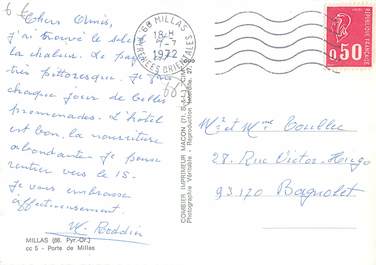 Chers Amis,
j'ai trouvé le bleu
la chaleur. Le pays
très pittoresque. Je fais
chaque jour de belles
promenades. L'hôtel
est bon, la nourriture
abondante. Je pense
rentrer vers le 15.
Je vous embrasse
affectueusement.
MILLAS (66. Pyr-Or.)
cc 5 - Porte de Millas
COMBIER IMPRIMEUR MACON (71. S.-&-L.)
Photographie Véritable - Reproduction interdite.
66 MILLAS
18-H
7-7
1972
PYRENEES ORIENTALES
0,50
REPUBLIQUE FRANCAISE
Mr et Mme
28, Rue Victor-Hugo
93170 Bagnolet